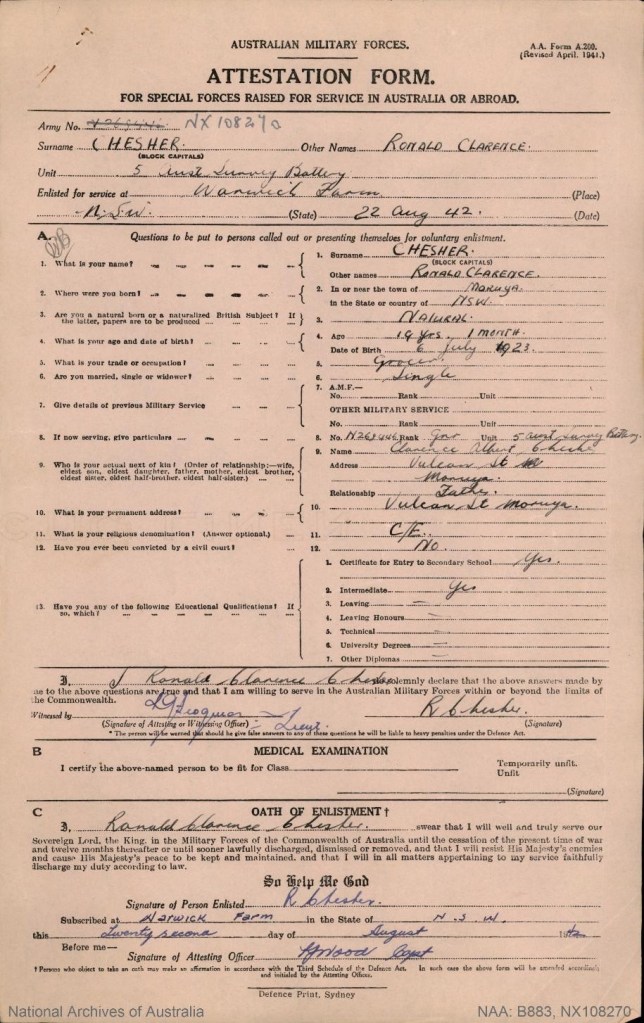 AUSTRALIAN MILITARY FORCES.
A.A. Form A.200.
(Revised April, 1941.)
ATTESTATION FORM.
FOR SPECIAL FORCES RAISED FOR SERVICE IN AUSTRALIA OR ABROAD.
Army No. N268446 NX 108270
Surname CHESHER Other Names RONALD CLARENCE.
(BLOCK CAPITALS)
Unit 5 Aust Survey Battery
Enlisted for service at Warwick Farm (Place)
N.S.W. (State) 22 Aug 42. (Date)
A. Questions to be put to persons called out or presenting themselves for voluntary enlistment.
1. What is your name? 1. Surname CHESHER.
(BLOCK CAPITALS)
Other names RONALD CLARENCE.
2. Where were you born? 2. In or near the town of Moruya.
in the State or country of NSW.
3. Are you a natural born or a naturalized British Subject? If the latter, papers are to be produced 3. NATURAL.
4. What is your age and date of birth? 4. Age 19 yrs. 1 month.
Date of Birth 6 July 1923.
5. What is your trade or occupation? 5. Grocer
6. Are you married, single or widower? 6. Single
7. Give details of previous Military Service 7. A.M.F.—
No. Rank Unit
OTHER MILITARY SERVICE
No. Rank Unit
8. If now serving, give particulars 8. No. N268446 Rank Gnr Unit 5 Aust Survey Battery.
9. Who is your actual next of kin? (Order of relationship:—wife, eldest son, eldest daughter, father, mother, eldest brother, eldest sister, eldest half-brother, eldest half-sister.) 9. Name Clarence Albert Chesher
Address Vulcan St
Moruya.
Relationship Father.
10. What is your permanent address? 10. Vulcan St Moruya.
11. What is your religious denomination? (Answer optional.) 11. C/E.
12. Have you ever been convicted by a civil court? 12. No.
13. Have you any of the following Educational Qualifications? If so, which?
1. Certificate for Entry to Secondary School Yes.
2. Intermediate Yes
3. Leaving —
4. Leaving Honours —
5. Technical —
6. University Degrees —
7. Other Diplomas —
I, Ronald Clarence Chesher solemnly declare that the above answers made by
me to the above questions are true and that I am willing to serve in the Australian Military Forces within or beyond the limits of
the Commonwealth.
Witnessed by Lieut. R Chesher.
(Signature of Attesting or Witnessing Officer) (Signature)
* The person will be warned that should he give false answers to any of these questions he will be liable to heavy penalties under the Defence Act.
B MEDICAL EXAMINATION
I certify the above-named person to be fit for Class Temporarily unfit.
Unfit
(Signature)
C OATH OF ENLISTMENT†
I, Ronald Clarence Chesher. swear that I will well and truly serve our
Sovereign Lord, the King, in the Military Forces of the Commonwealth of Australia until the cessation of the present time of war
and twelve months thereafter or until sooner lawfully discharged, dismissed or removed, and that I will resist His Majesty's enemies
and cause His Majesty's peace to be kept and maintained, and that I will in all matters appertaining to my service faithfully
discharge my duty according to law.
So Help Me God
Signature of Person Enlisted R Chesher.
Subscribed at Warwick Farm in the State of N.S.W.
this Twenty second day of August 1942
Before me—
Signature of Attesting Officer Wood Capt
† Persons who object to take an oath may make an affirmation in accordance with the Third Schedule of the Defence Act. In such case the above form will be amended accordingly
and initialed by the Attesting Officer.
Defence Print, Sydney
National Archives of Australia
NAA: B883, NX108270